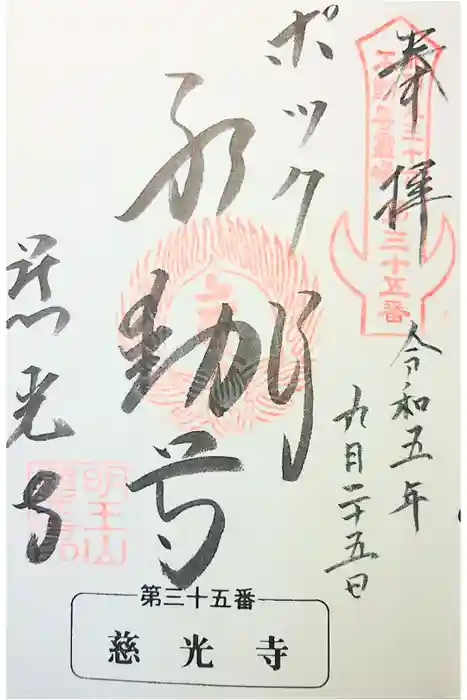 奉拝
令和五年
九月二十五日
ポックリ
不動尊
慈光寺
三十五番
明王山
第三十五番
慈光寺